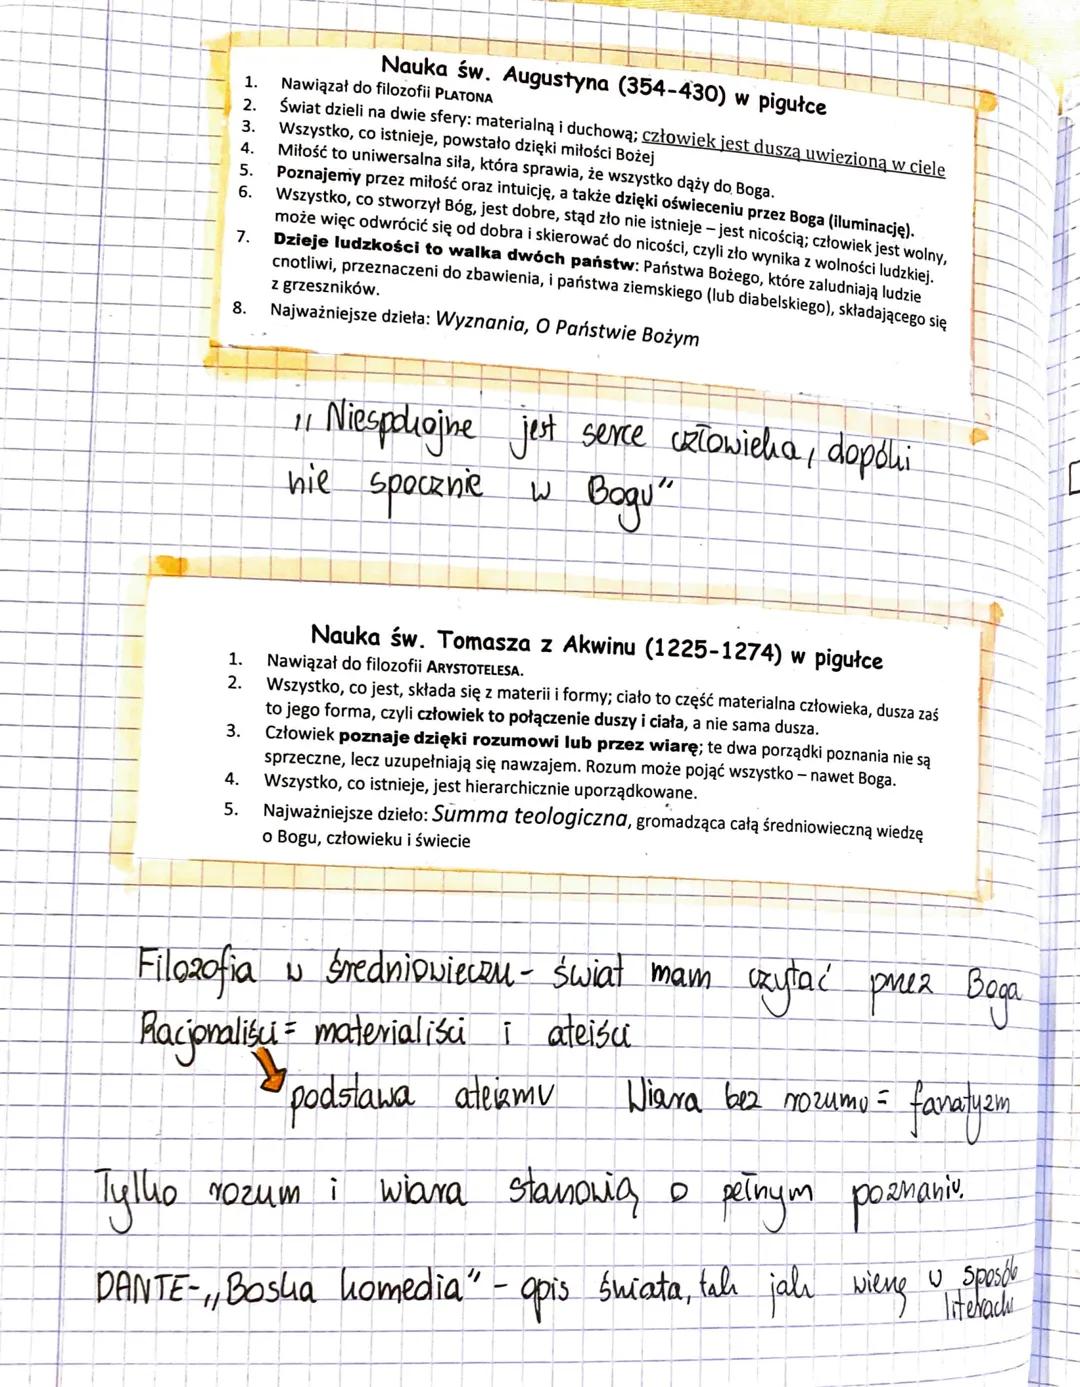 Nauka św. Augustyna (354-430) w pigułce
1. Nawiązał do filozofii PLATONA
2. Świat dzieli na dwie sfery: materialną i duchową; człowiek jest duszą uwiezioną w ciele
3. Wszystko, co istnieje, powstało dzięki miłości Bożej
4. Miłość to uniwersalna siła, która sprawia, że wszystko dąży do Boga.
5. Poznajemy przez miłość oraz intuicję, a także dzięki oświeceniu przez Boga (iluminację).
6. Wszystko, co stworzył Bóg, jest dobre, stąd zło nie istnieje – jest nicością; człowiek jest wolny,
może więc odwrócić się od dobra i skierować do nicości, czyli zło wynika z wolności ludzkiej.
7. Dzieje ludzkości to walka dwóch państw: Państwa Bożego, które zaludniają ludzie
cnotliwi, przeznaczeni do zbawienia, i państwa ziemskiego (lub diabelskiego), składającego się
z grzeszników.
8. Najważniejsze dzieła: Wyznania, O Państwie Bożym
„Niespokojne jest serce człowieka, dopóki
nie spocznie w Bogu"
Nauka św. Tomasza z Akwinu (1225-1274) w pigułce
1. Nawiązał do filozofii ARYSTOTELESA.
2. Wszystko, co jest, składa się z materii i formy; ciało to część materialna człowieka, dusza zaś
to jego forma, czyli człowiek to połączenie duszy i ciała, a nie sama dusza.
3. Człowiek poznaje dzięki rozumowi lub przez wiarę; te dwa porządki poznania nie są
sprzeczne, lecz uzupełniają się nawzajem. Rozum może pojąć wszystko – nawet Boga.
4. Wszystko, co istnieje, jest hierarchicznie uporządkowane.
5. Najważniejsze dzieło: Summa teologiczna, gromadząca całą średniowieczną wiedzę
o Bogu, człowieku i świecie
Filozofia w średniowieczu - świat mam czytać przez Boga
Racjonaliści = materialiści i ateiści
podstawa ateizmu Wiara bez rozumu = fanatyzm
Tylko rozum i wiara stanowią o pełnym poznaniu.
DANTE - „Boska komedia" - opis świata, tak jak wierzę w sposób
literacki